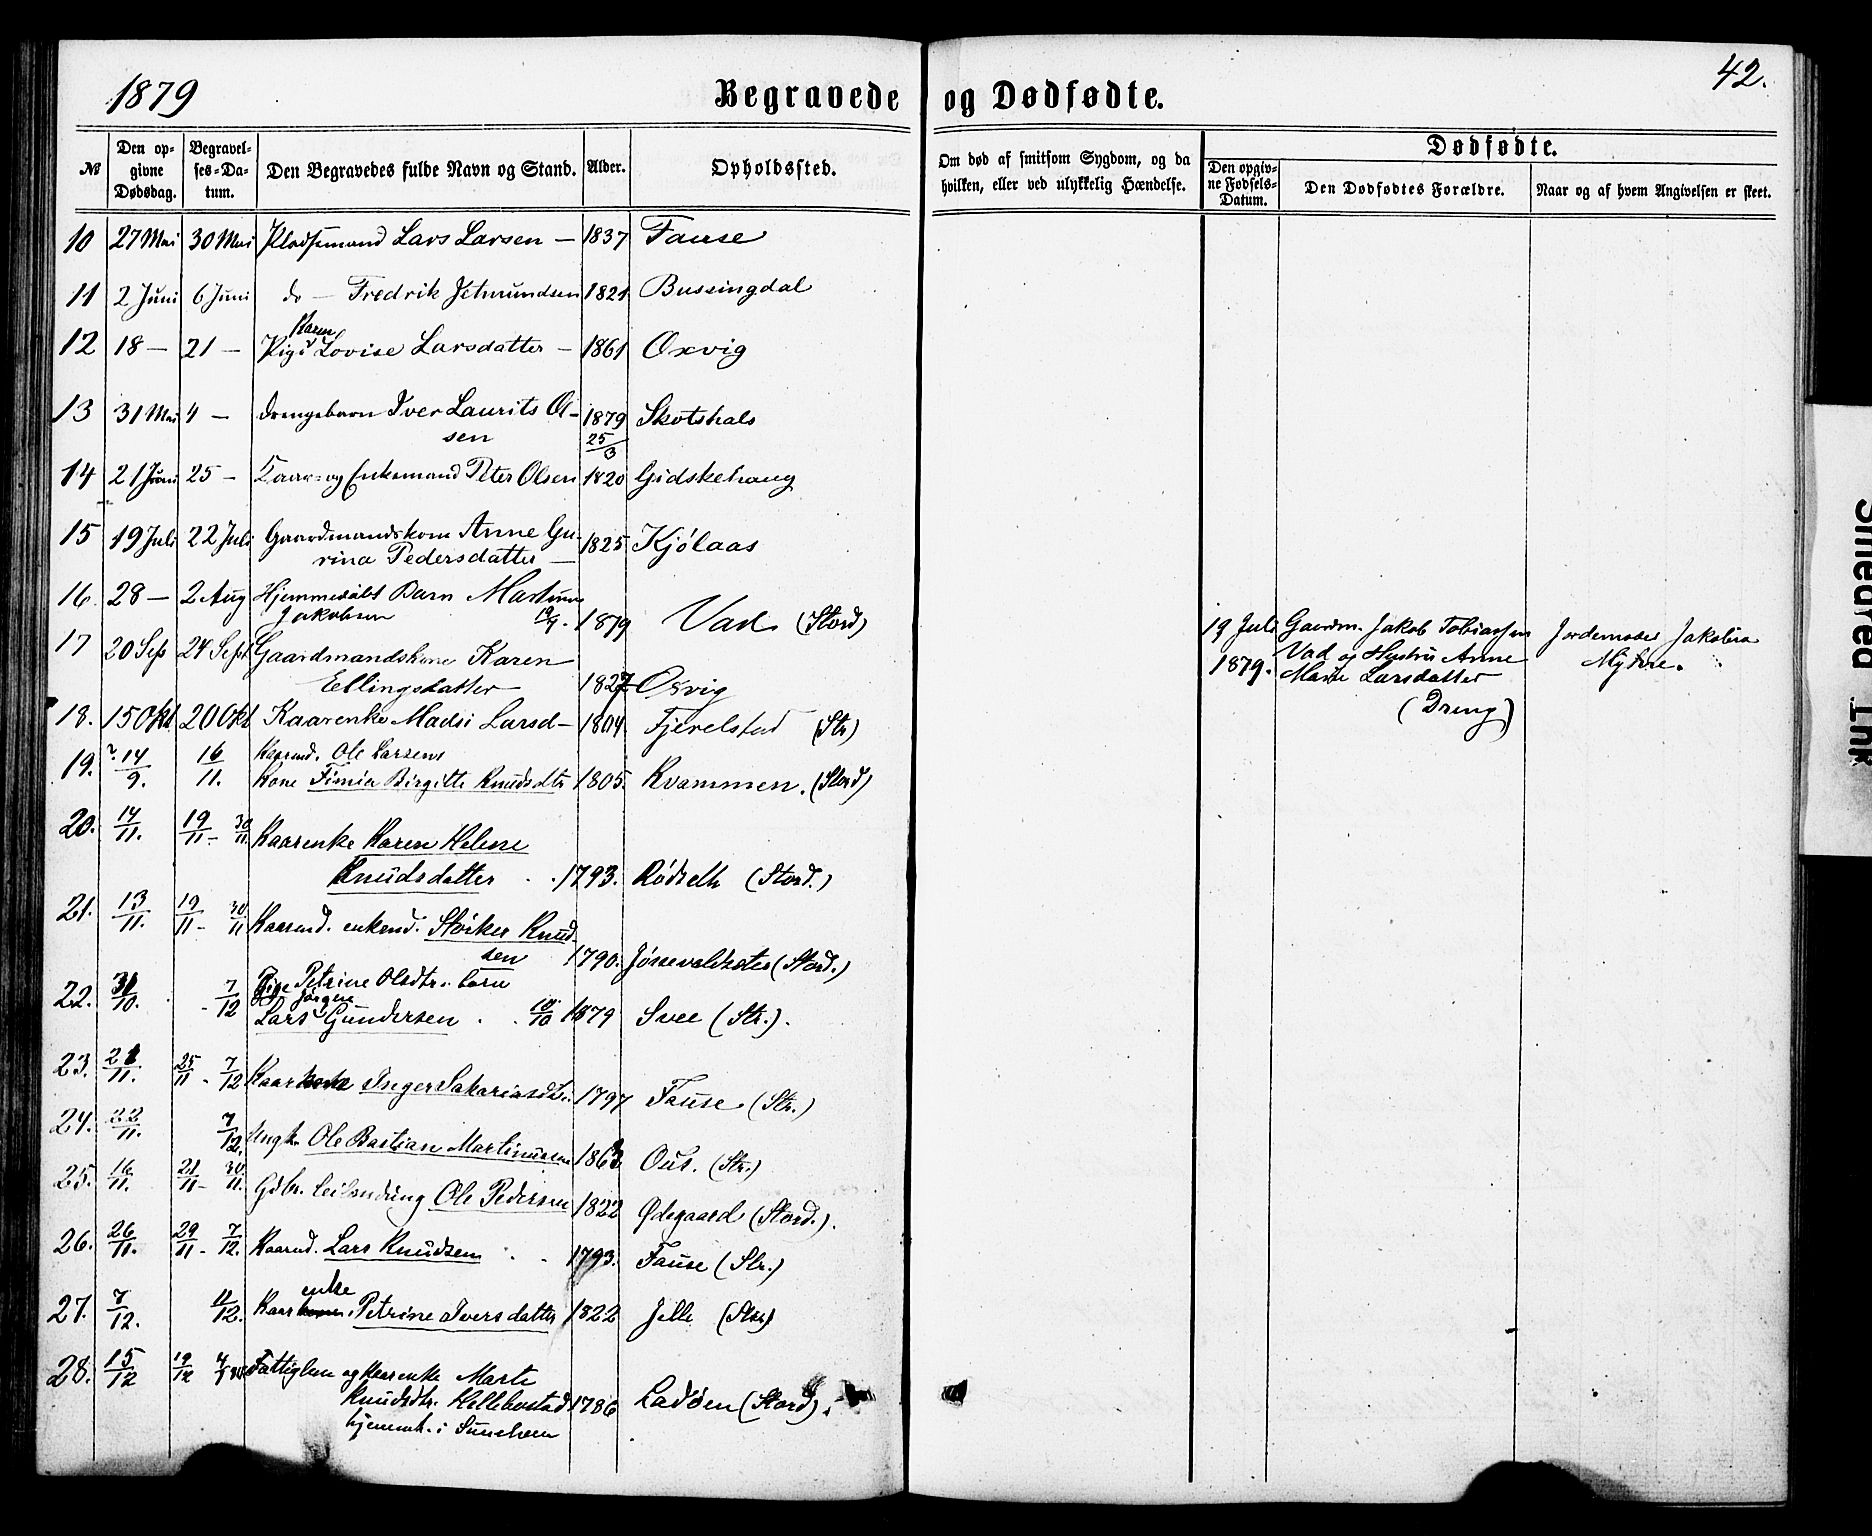 1879
Begravede og Dødfødte.
42.
№
Den opgivne Dødsdag.
Begravelses-Datum.
Den Begravedes fulde Navn og Stand.
Alder.
Opholdssted.
Om død af smitsom Sygdom, og da hvilken, eller ved ulykkelig Hændelse.
Dødfødte.
Den opgivne Fødsels-Datum.
Den Dødfødtes Forældre.
Naar og af hvem Angivelsen er skeet.
10 27 Mai 30 Mai Pladsemand Lars Larsen — 1837 Fause
11 2 Juni 6 Juni do — Fredrik Jetmundsen 1821 Bussingdal
Karen
12 18 — 21 — Pige Lovise Larsdatter — 1861 Oxvig
13 31 Mai 4 — Drengebarn Iver Laurits Ol-
sen 1879 25/3 Skotshals
14 21 Juni 25 — Kaar- og Enkemand Peter Olsen 1820 Gidskehaug
15 19 Juli 22 Juli Gaardmandskone Anne Gu-
rina Pedersdatter — 1825 Kjølaas
16 28 — 2 Aug Hjemmedøbt Barn Martinus
Jakobsen 19/7. 1879 Vad (Stord)
17 20 Sep 24 Sept Gaardmandskone Karen
Ellingsdatter 1827 Oxvig
18. 15 Okt 20 Okt Kaarenke Madsi Larsd — 1804 Fjerelstad (Str)
19. ? 14/9. 16/11. Kaarmd. Ole Larsens
Kone Simia Birgitte Knudsdtr 1805. Kvammen. (Stord)
20. 14/11. 19/11 - 30/11. Kaarenke Karen Helene
Knudsdatter . . 1793. Rødseth (Stord.)
21. 13/11. 19/11 - 30/11 Kaarmd. enkemd. Størker Knud-
sen 1790. (Stord.)
22. 31/10. - 7/12 Pige Petrine Olsdtr.s barn
Jørgen
Lars Gundersen . . 10/10 1879 Svee (Str.).
23. 21/11. 25/11 - 7/12 Kaarkone Inger Sakariasdtr. 1797 Fause (Str.)
24. 22/11. 7/12. Ungk. Ole Bastian Martinussen 1863 Ous. (Str.)
25. 16/11. 21/11 - 30/11. Gdbr. leilending Ole Pedersen 1822 Ødegaard (Stord.).
26. 26/11. 29/11 - 7/12. Kaarmd. Lars Knudsen . . 1793. Fause (Str.)
enke
27. 7/12. 11/12. Kaarkone. Petrine Iversdatter 1822 Jelle (Str)
28. 15/12 19/12 4/1 80 Fattiglem og Kaarenke Marte
Knudsdtr. Hellebostad 1786 Ladøen (Stord).
hjemmh. i Sunelvem
19 Juli
1879.
Gaardm. Jakob Tobiassen
Vad og Hustru Anne
Marte Larsdatter
(Dreng)
Jordemoder Jakobia
Myhre.